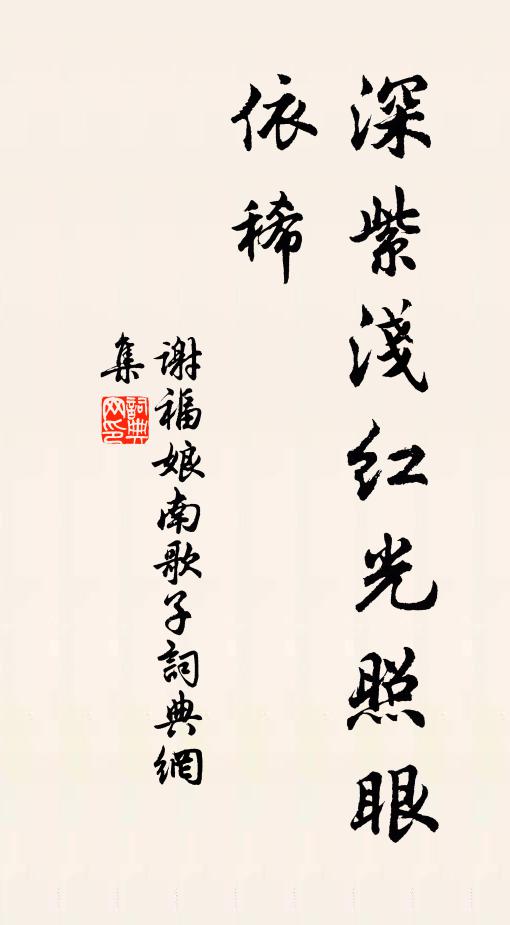 深紫淺红光照眼
依稀
谢福娘南歌子詞典網
集
詞典
网印